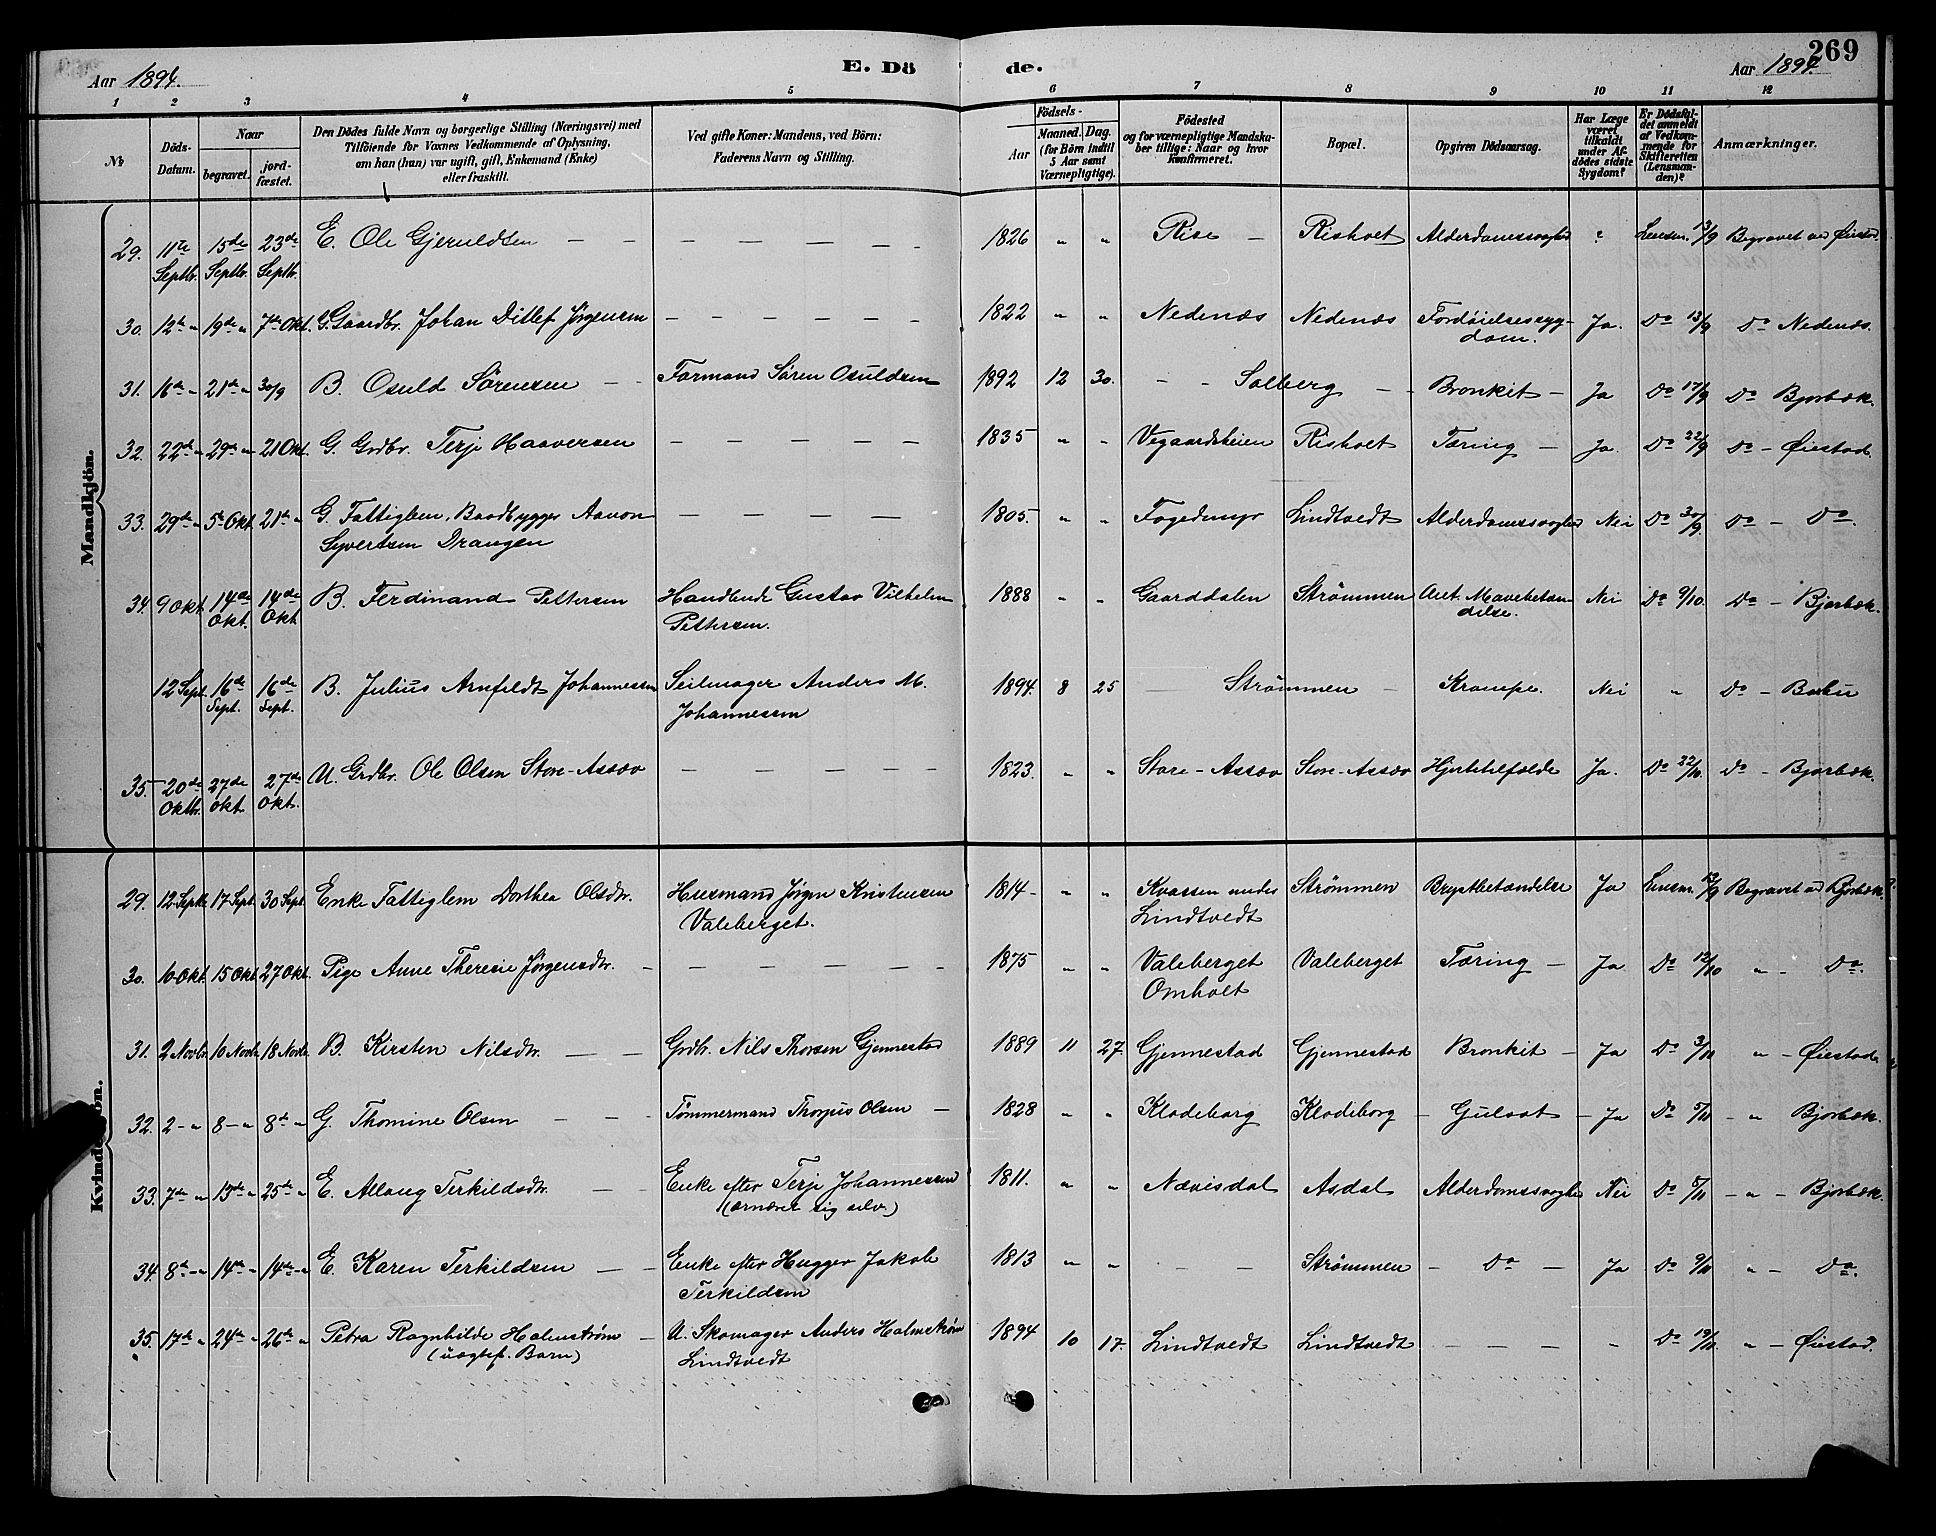 269
Aar 1894.
E. Dö de.
Aar 1894.
1 2 3 4 5 6 7 8 9 10 11 12
No
Döds-Datum.
Naar
begravet.
jord-fæstet.
Den Dödes fulde Navn og borgerlige Stilling (Næringsvei) med
Tilföiende for Voxnes Vedkommende af Oplysning,
om han (hun) var ugift, gift, Enkemand (Enke)
eller fraskilt.
Ved gifte Koner: Mandens, ved Börn:
Faderens Navn og Stilling.
Födsels-
Aar
Maaned. Dag.
(for Börn indtil
5 Aar samt
Værnepligtige).
Födested
og for værnepligtige Mandska-
ber tillige: Naar og hvor
Konfirmeret.
Bopæl.
Opgiven Dödsaarsag.
Har Læge
været
tilkaldt
under Af-
dödes sidste
Sygdom?
Er Dödsfal-
det anmeldt
af Vedkom-
mende for
Skifteretten
(Lensman-
den)?
Anmærkninger.
Mandkjön.
29. 11te Septbr. 15de Septbr. 23de Septbr. E. Ole Gjeruldsen — — — — — — 1826 " " Rise — Risholt Alderdomssvaghed ? Lensm. 13/9 Begravet ved Øiestad
30. 12te " 19de " 7de Okt. G. Gaardbr. Johan Ditlef Jørgensen — — — — — 1822 " " Nedenæs Nedenæs Fordøielsessyg-
dom. Ja. Do 13/9 Do Nedenæs.
31. 16de " 21de " 30/9 B. Osuld Sörensen — — Formand Sören Osuldsen 1892 12 30. — — Solberg — Bronkit — Ja Do 17/9 Do Bjorbæk.
32. 22de " 29de " 21 Okt. G. Grdbr. Terje Haaversen — — — — — 1835 " " Vegaardsheien Risholt Tæring — Ja. Do 22/9 Do — Øiestad.
33. 29de " 5te Okt 21de " G. Fattiglem, Baadbygger Aanon
Syvertsen Drangen — — — — — 1805. " " Lindtvedt Alderdomssvaghed Nei Do 30/9. Do — Do.
34. 9 Okt. 14de Okt. 14de Okt B. Ferdinand Pettersen Handlende Gustav Vilhelm
Pettersen. 1888 " " Gaarddalen Strømmen Mavebetæn-
delse. Nei Do 9/10. Do — Bjorbæk.
12 Sept. 16de Sept. 16de Sept. B. Julius Arnfeldt Johannessen Seilmager Anders M.
Johannessen 1894. 8 25 — Strømmen — Krampe. Nei " Do —
35. 20de Oktbr. 27de Okt. 27de Okt. U. Grdbr. Ole Olsen Store-Assæv — — — — — 1823. " " Store-Assæv Store-Assæv Hjertetilfælde Ja. Do 22/10. Do — Bjorbæk.
Kvindekjön.
29. 12 Septbr. 17 Sept. 30 Sept. Enke Fattiglem Dorthea Olsdtr. Husmand Jørgen Kristensen
Valeberget. 1814 — " " Kvassen under
Lindtvedt Strømmen Brystbetændelse Ja Lensm. 12/9 Begravet ved Bjorbæk.
30. 10 Okt. 15 Okt. 27 Okt. Pige Anne Theresie Jørgensdtr. — — — — — — 1875 " " Valeberget
Omholt Valeberget Tæring — Ja Do 12/10 " Do.
31. 2 Novbr. 10 Novbr. 18 Novbr. B. Kirsten Nilsdtr. — — Grdbr. Nils Thorsen Gjennestad 1889 11 27. Gjennestad Gjennestad Bronkit — Ja Do 3/11 " — Øiestad
32. 2 — " 8 — " 8de " G. Thomine Olsen — — — Tömmermand Thorjus Olsen — 1828 " " Klodeborg Klodeborg — Gulsot — Ja Do 5/11 — " Bjorbæk.
33. 7de " 13de " 25de " E. Allaug Terkildsdtr. — — Enke efter Terje Johannessen
(ernærer sig selv) 1811. " " Nævisdal Asdal Alderdomssvaghed Nei Do 5/11 — " — Bjorbæk.
34. 8de — " 14de — " 14de — " E. Karen Terkildsen — — Enke efter Hugger Jakob
Terkildsen 1813 " " — — Strømmen — Do — Ja Do 9/11 " — Do.
35. 17de " 24de " 26de " Petra Ragnhilde Holmstrøm —
(uægtef. Barn) U. Skomager Anders Holmstrøm
Lindtvedt 1894 10 17. Lindtvedt Lindtvedt — — — " Do 19/11. " — Øiestad.